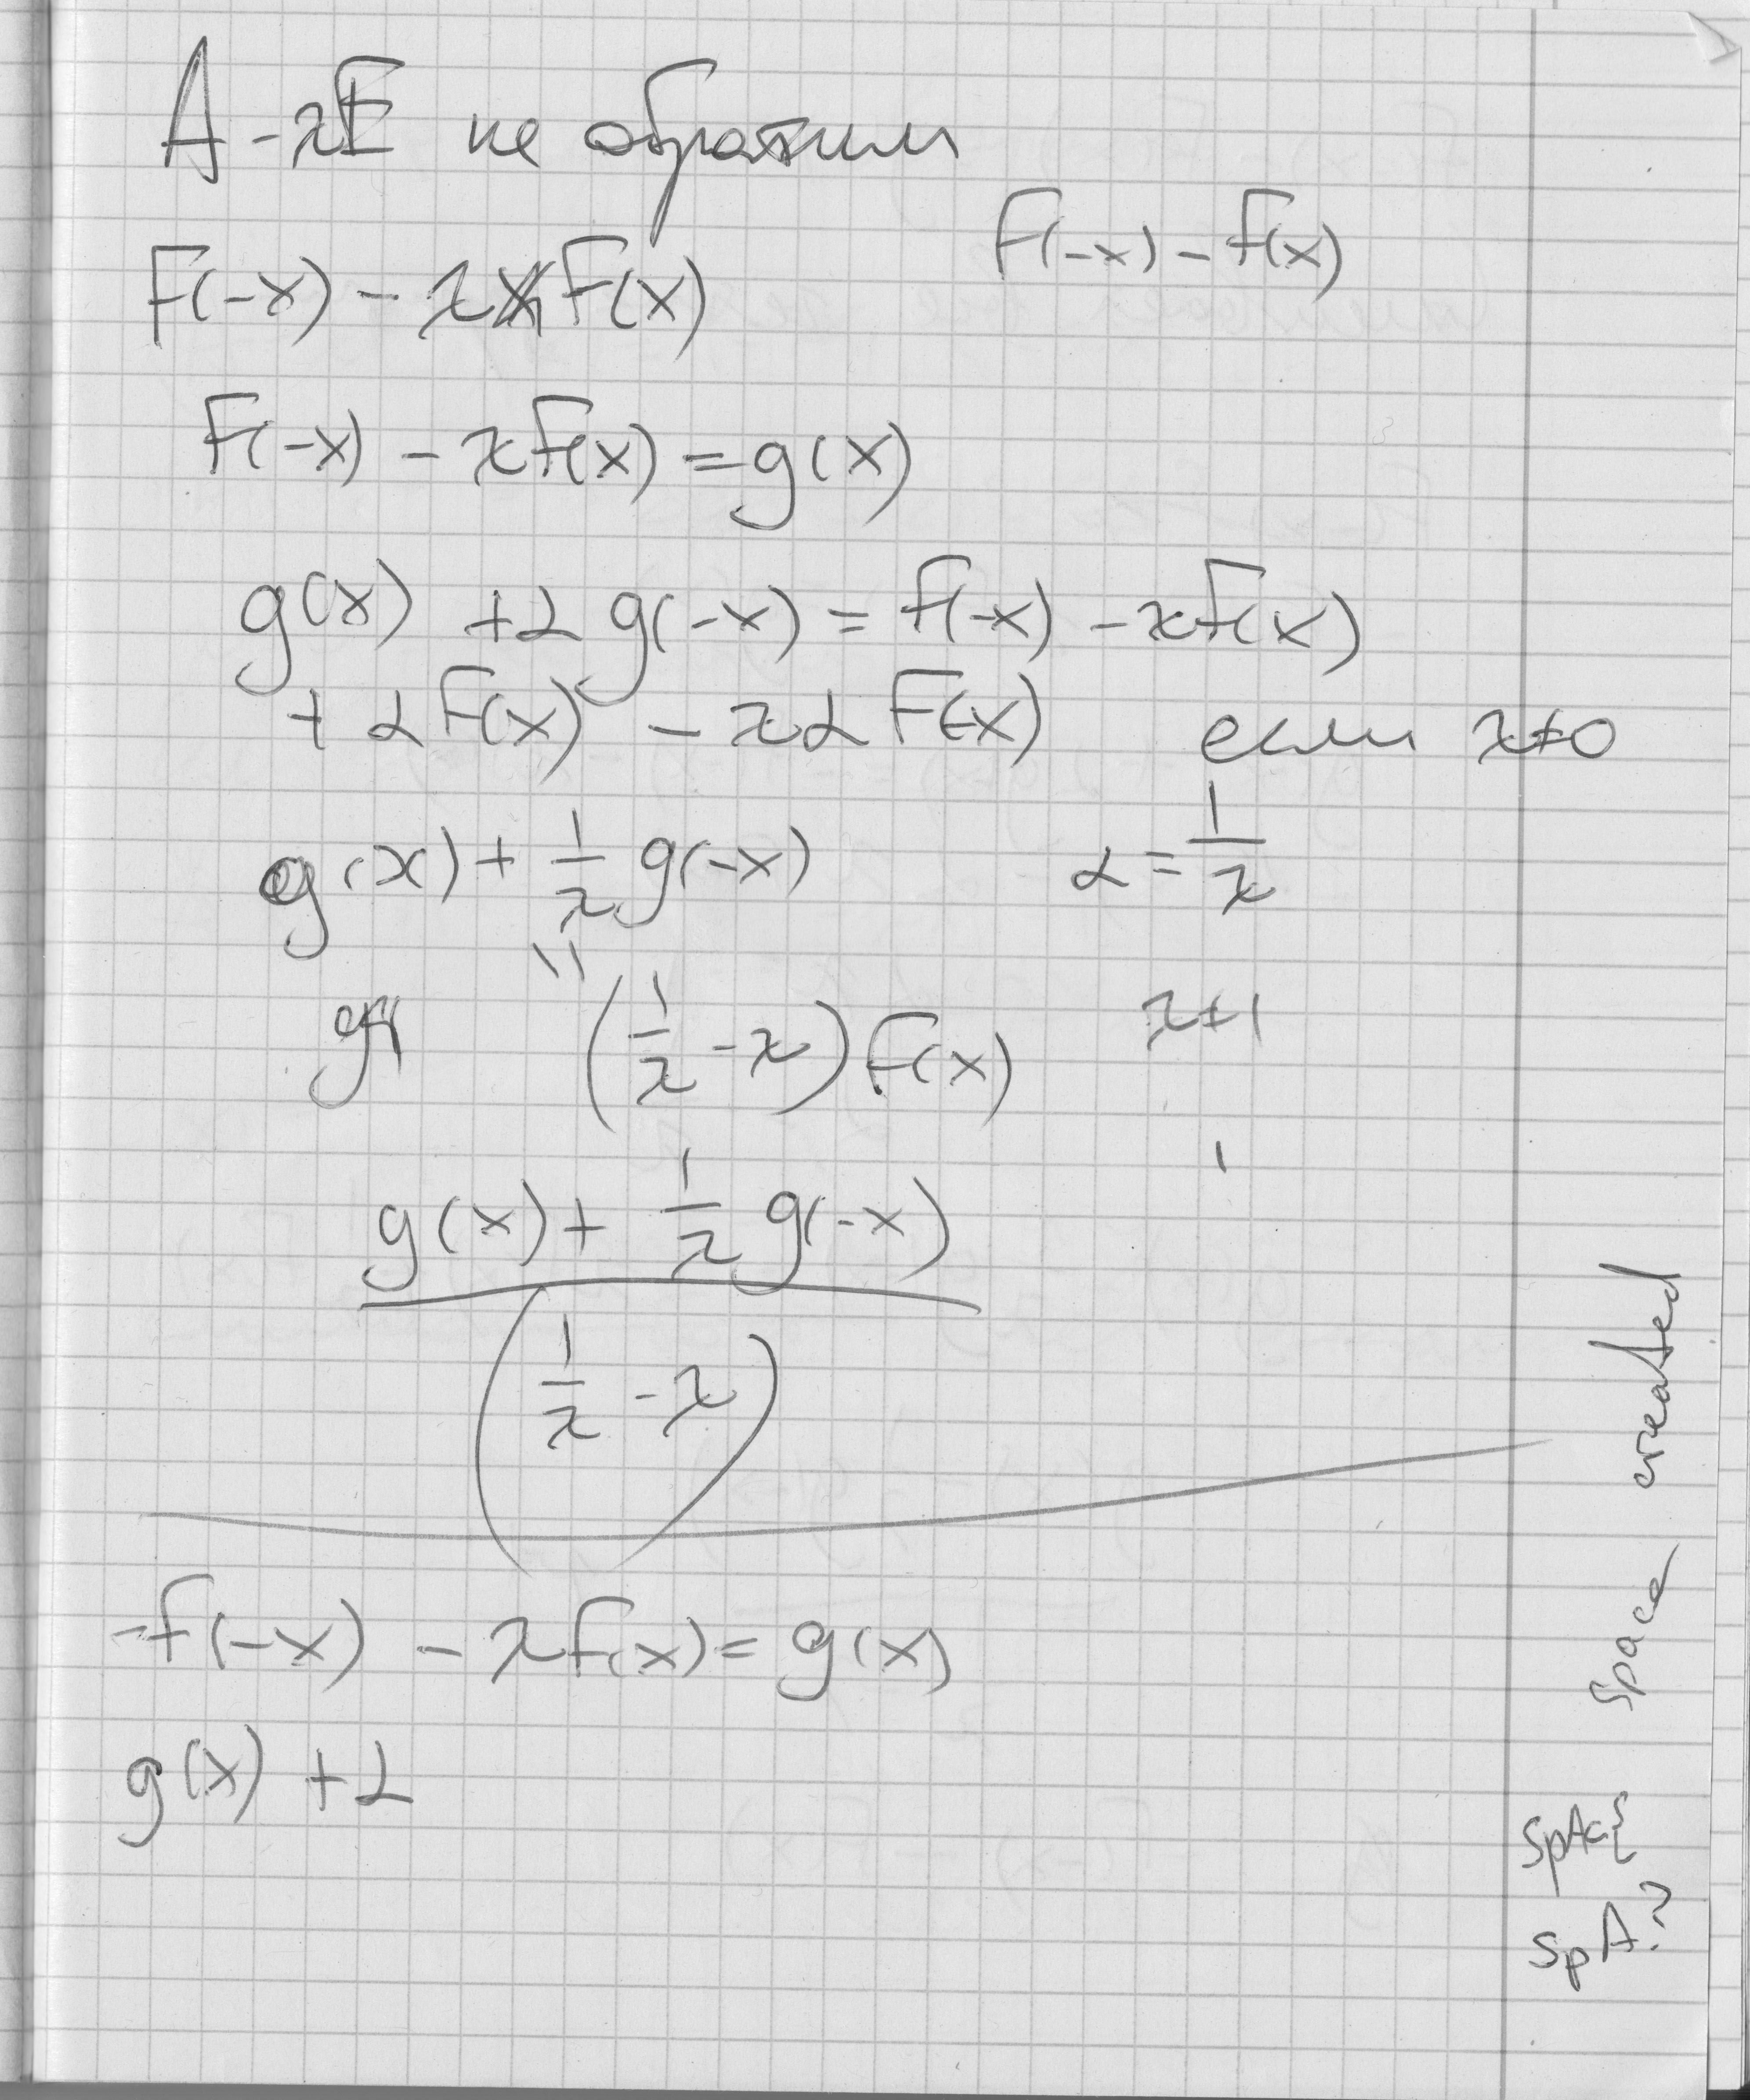 A - λE не обратим
F(-x) - f(x)
F(-x) - λ F(x)
F(-x) - λf(x) = g(x)
g(x) + α g(-x) = f(-x) - λf(x)
+ α F(x) - λ α F(-x) если λ≠0
g(x) + 1/λ g(-x) α = 1/λ
" (1/λ - λ) F(x) λ≠1
g(x) + 1/λ g(-x)
(1/λ - λ)
-f(-x) - λf(x) = g(x)
g(x) + α
space created
SpA
SpA?